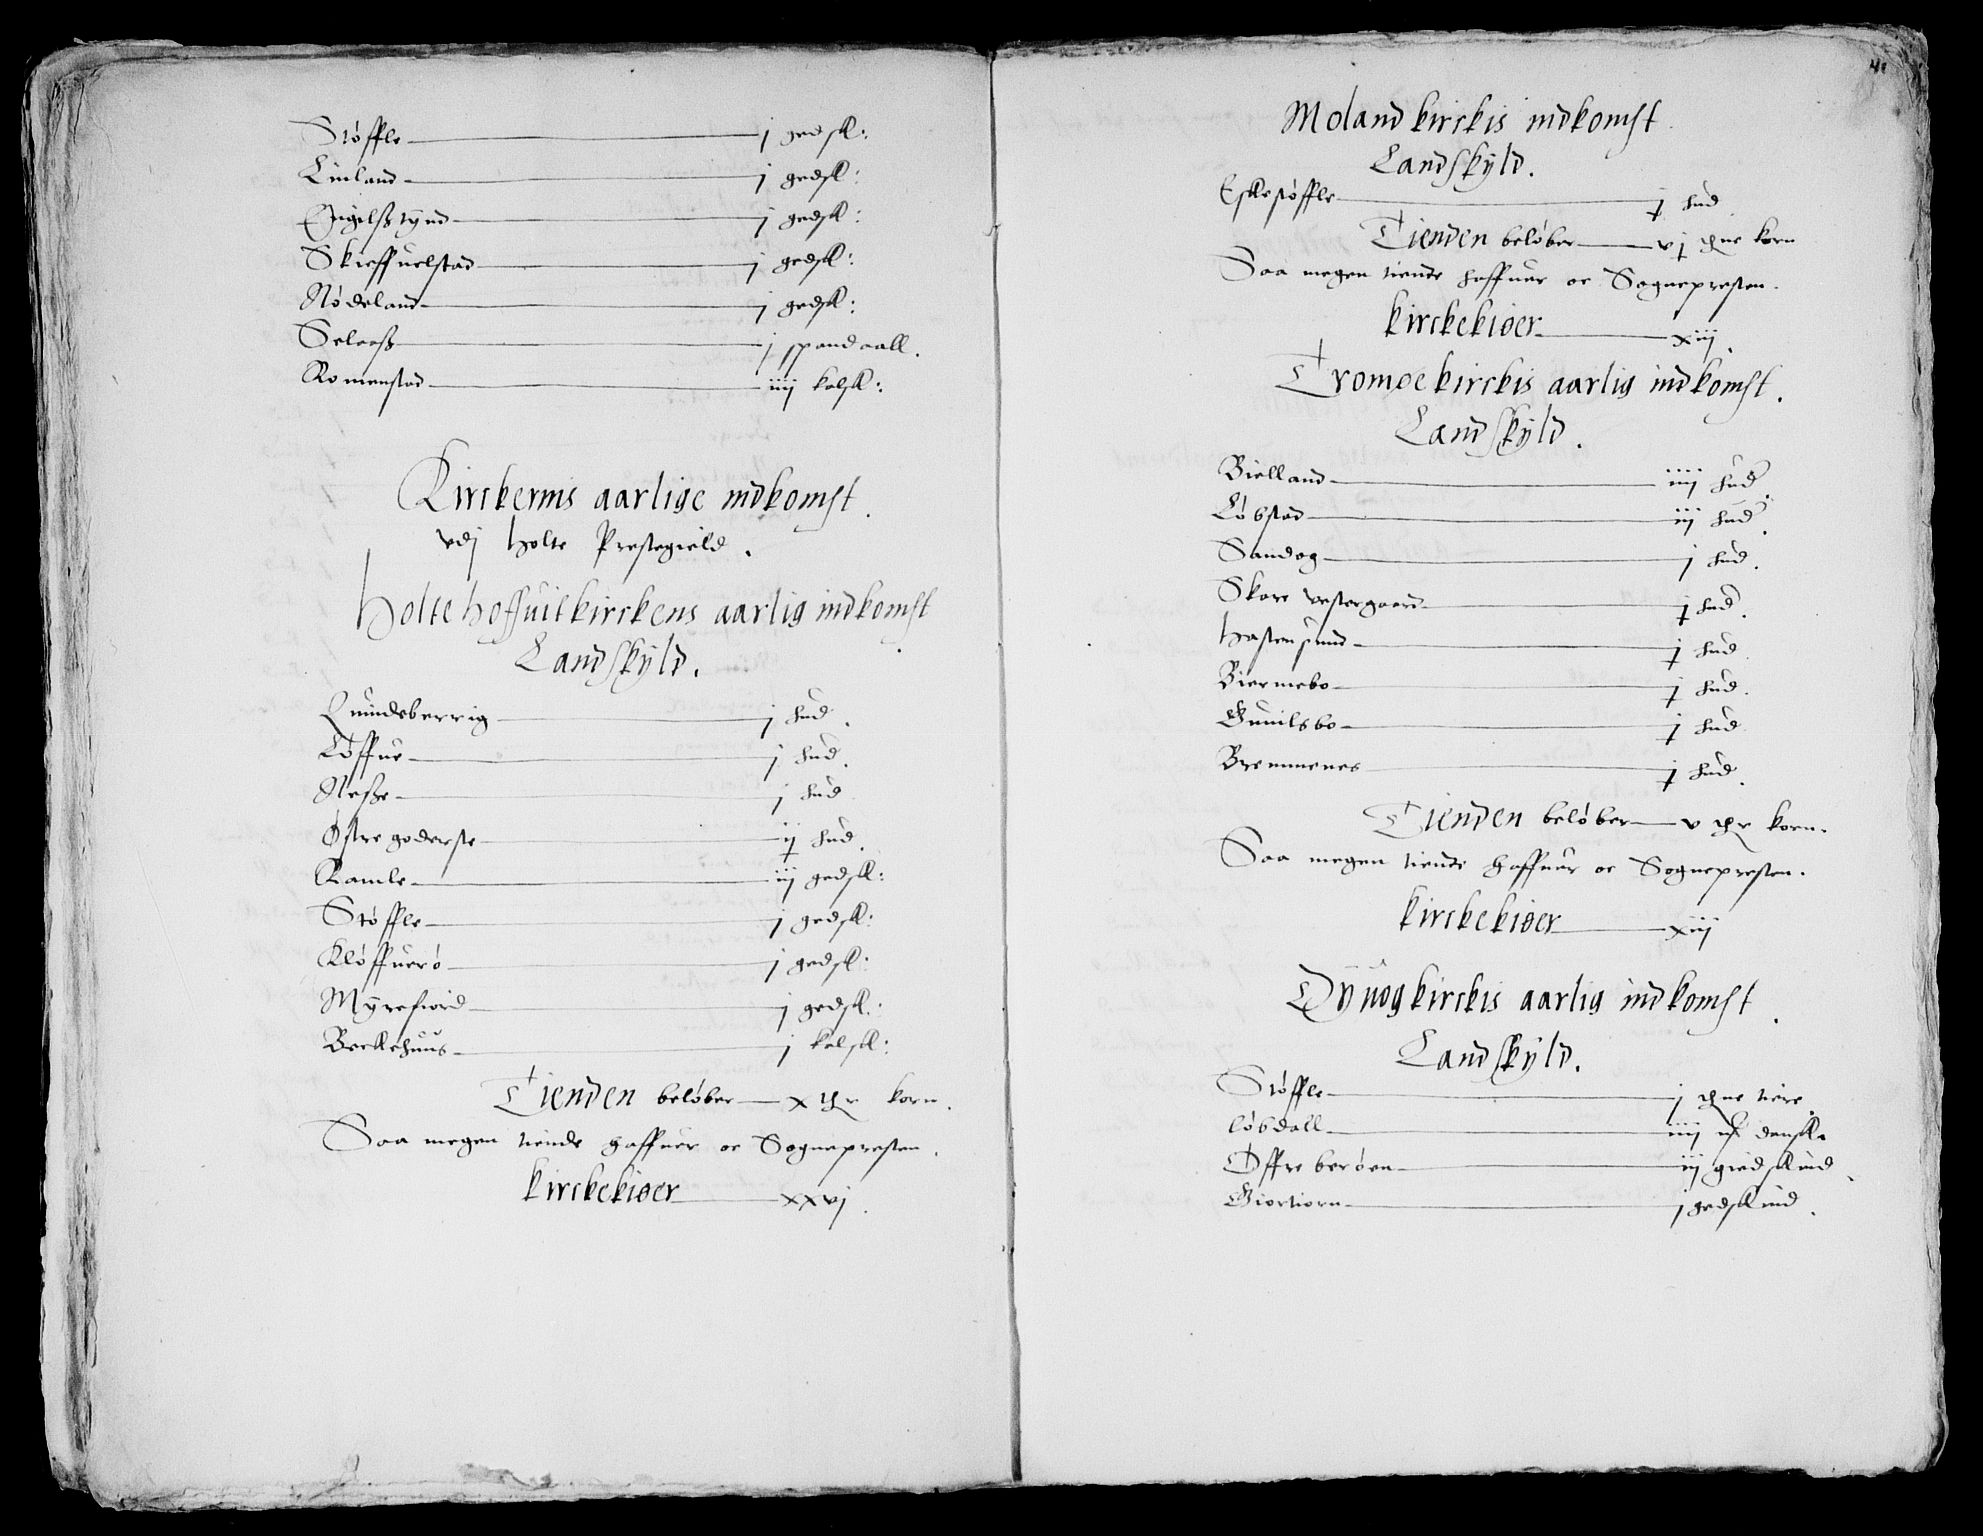 Støffle j gedsk:
Linland j gedsk:
Engelsß tynd j gedsk:
Skieffuelstad j gedsk:
Nødeland j gedsk:
Selaaß j spandaall.
Romenstad iiij kalsk:
Kirckernis aarlige indkomst.
vdj Holte Prestegield.
Holte hoffuitkirckens aarlig indkomst
Landskyld.
Quindeberrig j hud.
Løffue j hud.
Neße j hud
Østre goderste ij hud.
Ramle iij gedsk:
Støffle j gedsk:
Kløffuerø j gedsk:
Myrefiord j gedsk:
Beckehuus j kalsk:
Tienden beløber x thr korn.
Saa megen tiende haffuer oc Sognepresten.
kirckekiøer xxvj.
41
Moland kirckis indkomst
Landskyld.
Eskestøffle j hud
Tienden beløber vj thne korn
Saa megen tiende haffuer oc Sognepresten.
kirckekiøer xiij.
Tromøe kirckis aarlig indkomst.
Landskyld.
Bielland iiij hud.
Løbstad iij hud.
Sandog j hud.
Skare vestergaard j hud.
Hastensund j hud
Biermebo j hud.
Gunilsbo j hud
Bremmenes j hud.
Tienden beløber v thr korn.
Saa megen tiende haffuer oc Sognepresten.
kirckekiøer xiij
Dyuog kirckis aarlig indkomst.
Landskyld.
Støffle j thne tiere.
Løbdall iiij dansk.
Øffre berøen iij giedskind.
Giortiorn j gedskind.